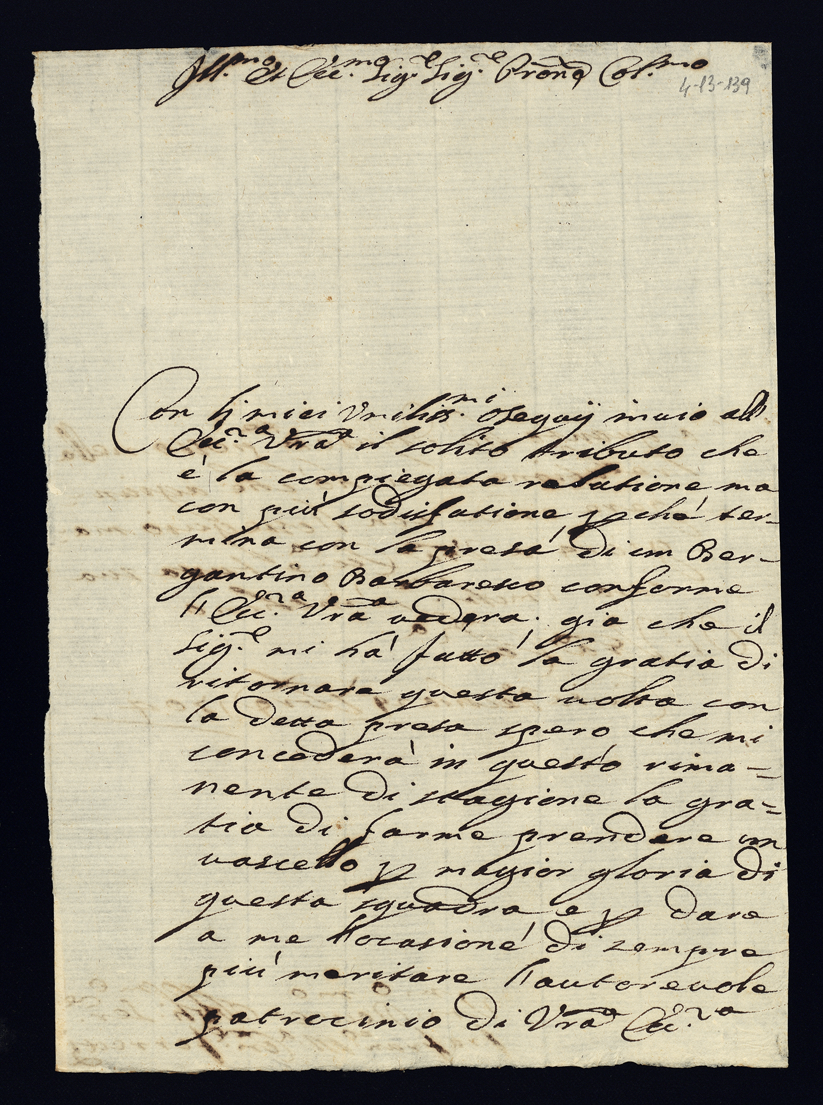 Ill.mo et Ecc.mo Sig.e Sig.e Pron̄e Col.mo
4-13-139
Con li miei Vmiliss.mi ossequij inuio all'
Ecc.za Vrā il solito tributo che
è la compiegata relatione ma
con più sodisfatione p che ter-
mina con la presa di un Ber-
gantino Barbaresco conforme
l'Ecc.za Vrā uederà. già che il
Sig.e mi hà fatto la gratia di
ritornare questa uolta con
la detta presa spero che mi
concederà in questo rima=
nente di stagione la gra=
tia di farme prendere un
uascello p magior gloria di
questa squadra e p dare
a me l'ocasione di sempre
più meritare l'autoreuole
patrocinio di Vrā Ecc.za